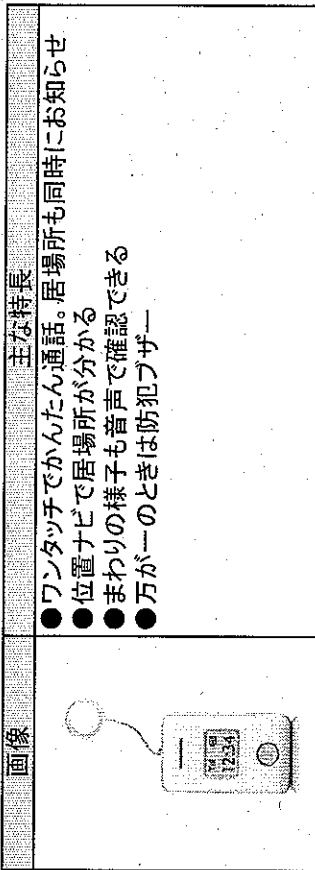 画像
主な特長
●ワンタッチでかんたん通話。居場所も同時にお知らせ
●位置ナビで居場所が分かる
●まわりの様子も音声で確認できる
●万が一のときは防犯ブザー
12:34